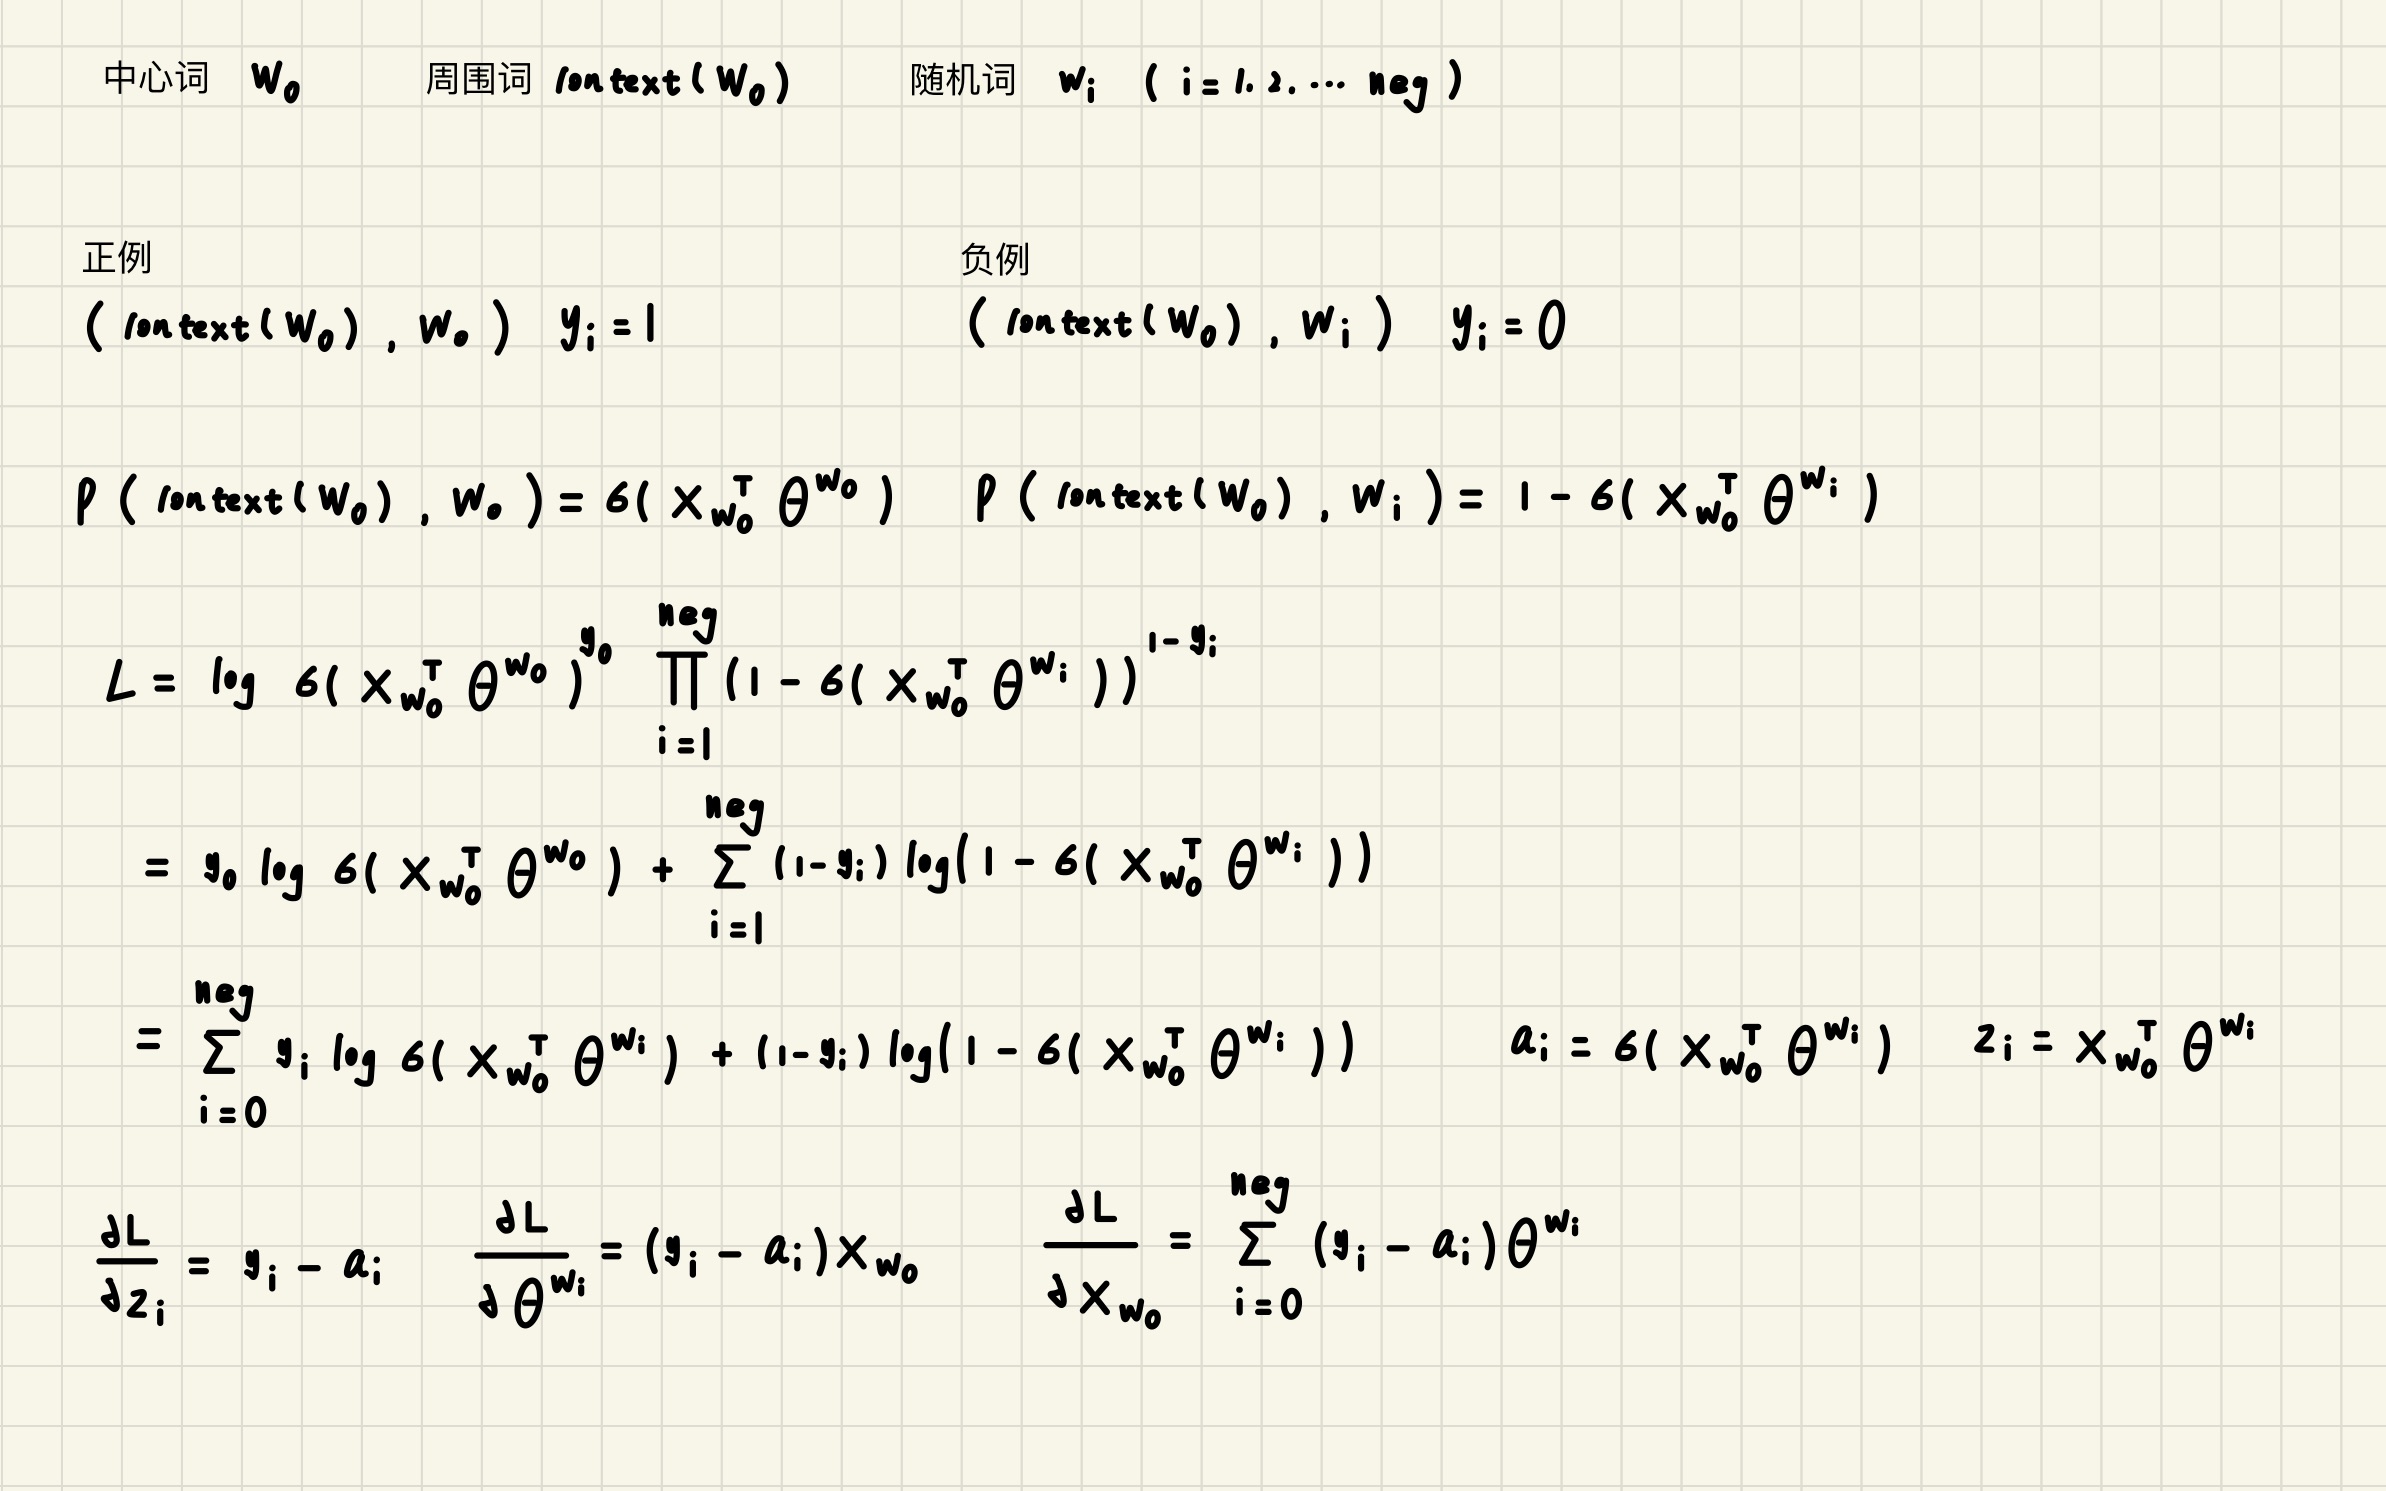 中心词 w₀ 周围词 context(w₀) 随机词 wᵢ ( i = 1. 2. ··· neg )
正例 负例
( context(w₀) , w₀ ) yᵢ = 1 ( context(w₀) , wᵢ ) yᵢ = 0
P ( context(w₀) , w₀ ) = σ( X_{w₀}^T θ^{w₀} ) P ( context(w₀) , wᵢ ) = 1 - σ( X_{w₀}^T θ^{wᵢ} )
L = log σ( X_{w₀}^T θ^{w₀} )^{y₀} ∏_{i=1}^{neg} (1 - σ( X_{w₀}^T θ^{wᵢ} ))^{1-yᵢ}
= y₀ log σ( X_{w₀}^T θ^{w₀} ) + ∑_{i=1}^{neg} (1-yᵢ) log(1 - σ( X_{w₀}^T θ^{wᵢ} ))
= ∑_{i=0}^{neg} yᵢ log σ( X_{w₀}^T θ^{wᵢ} ) + (1-yᵢ) log(1 - σ( X_{w₀}^T θ^{wᵢ} )) aᵢ = σ( X_{w₀}^T θ^{wᵢ} ) zᵢ = X_{w₀}^T θ^{wᵢ}
∂L/∂zᵢ = yᵢ - aᵢ ∂L/∂θ^{wᵢ} = (yᵢ - aᵢ) X_{w₀} ∂L/∂X_{w₀} = ∑_{i=0}^{neg} (yᵢ - aᵢ) θ^{wᵢ}